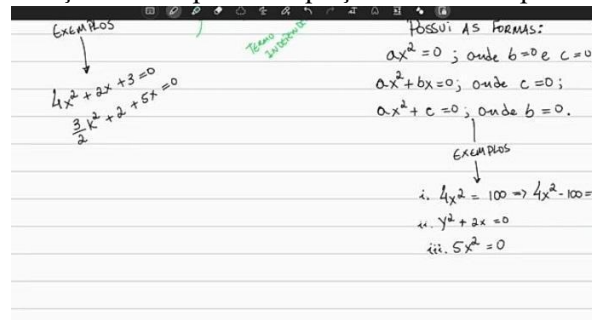 EXEMPLOS
4x² + 2x + 3 = 0
3/2 k² + 2 + 5x = 0
TERMO
POSSUI AS FORMAS:
ax² = 0 ; onde b = 0 e c = 0
ax² + bx = 0; onde c = 0;
ax² + c = 0; onde b = 0.
EXEMPLOS
i. 4x² = 100 => 4x² - 100 =
ii. y² + 2x = 0
iii. 5x² = 0